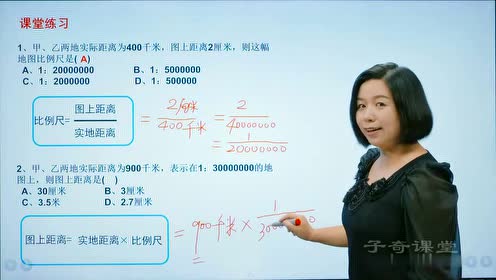 课堂练习
1、甲、乙两地实际距离为400千米，图上距离2厘米，则这幅
地图比例尺是( A )
A、1：20000000 B、1：5000000
C、1：2000000 D、1：500000
比例尺= 图上距离 / 实地距离 = 2厘米 / 400千米 = 2 / 40000000
= 1 / 20000000
2、甲、乙两地实际距离为900千米，表示在1：30000000的地
图上，则图上距离是( )
A、30厘米 B、3厘米
C、3.5米 D、2.7厘米
图上距离= 实地距离× 比例尺 = 900千米 ×
=
子奇课堂